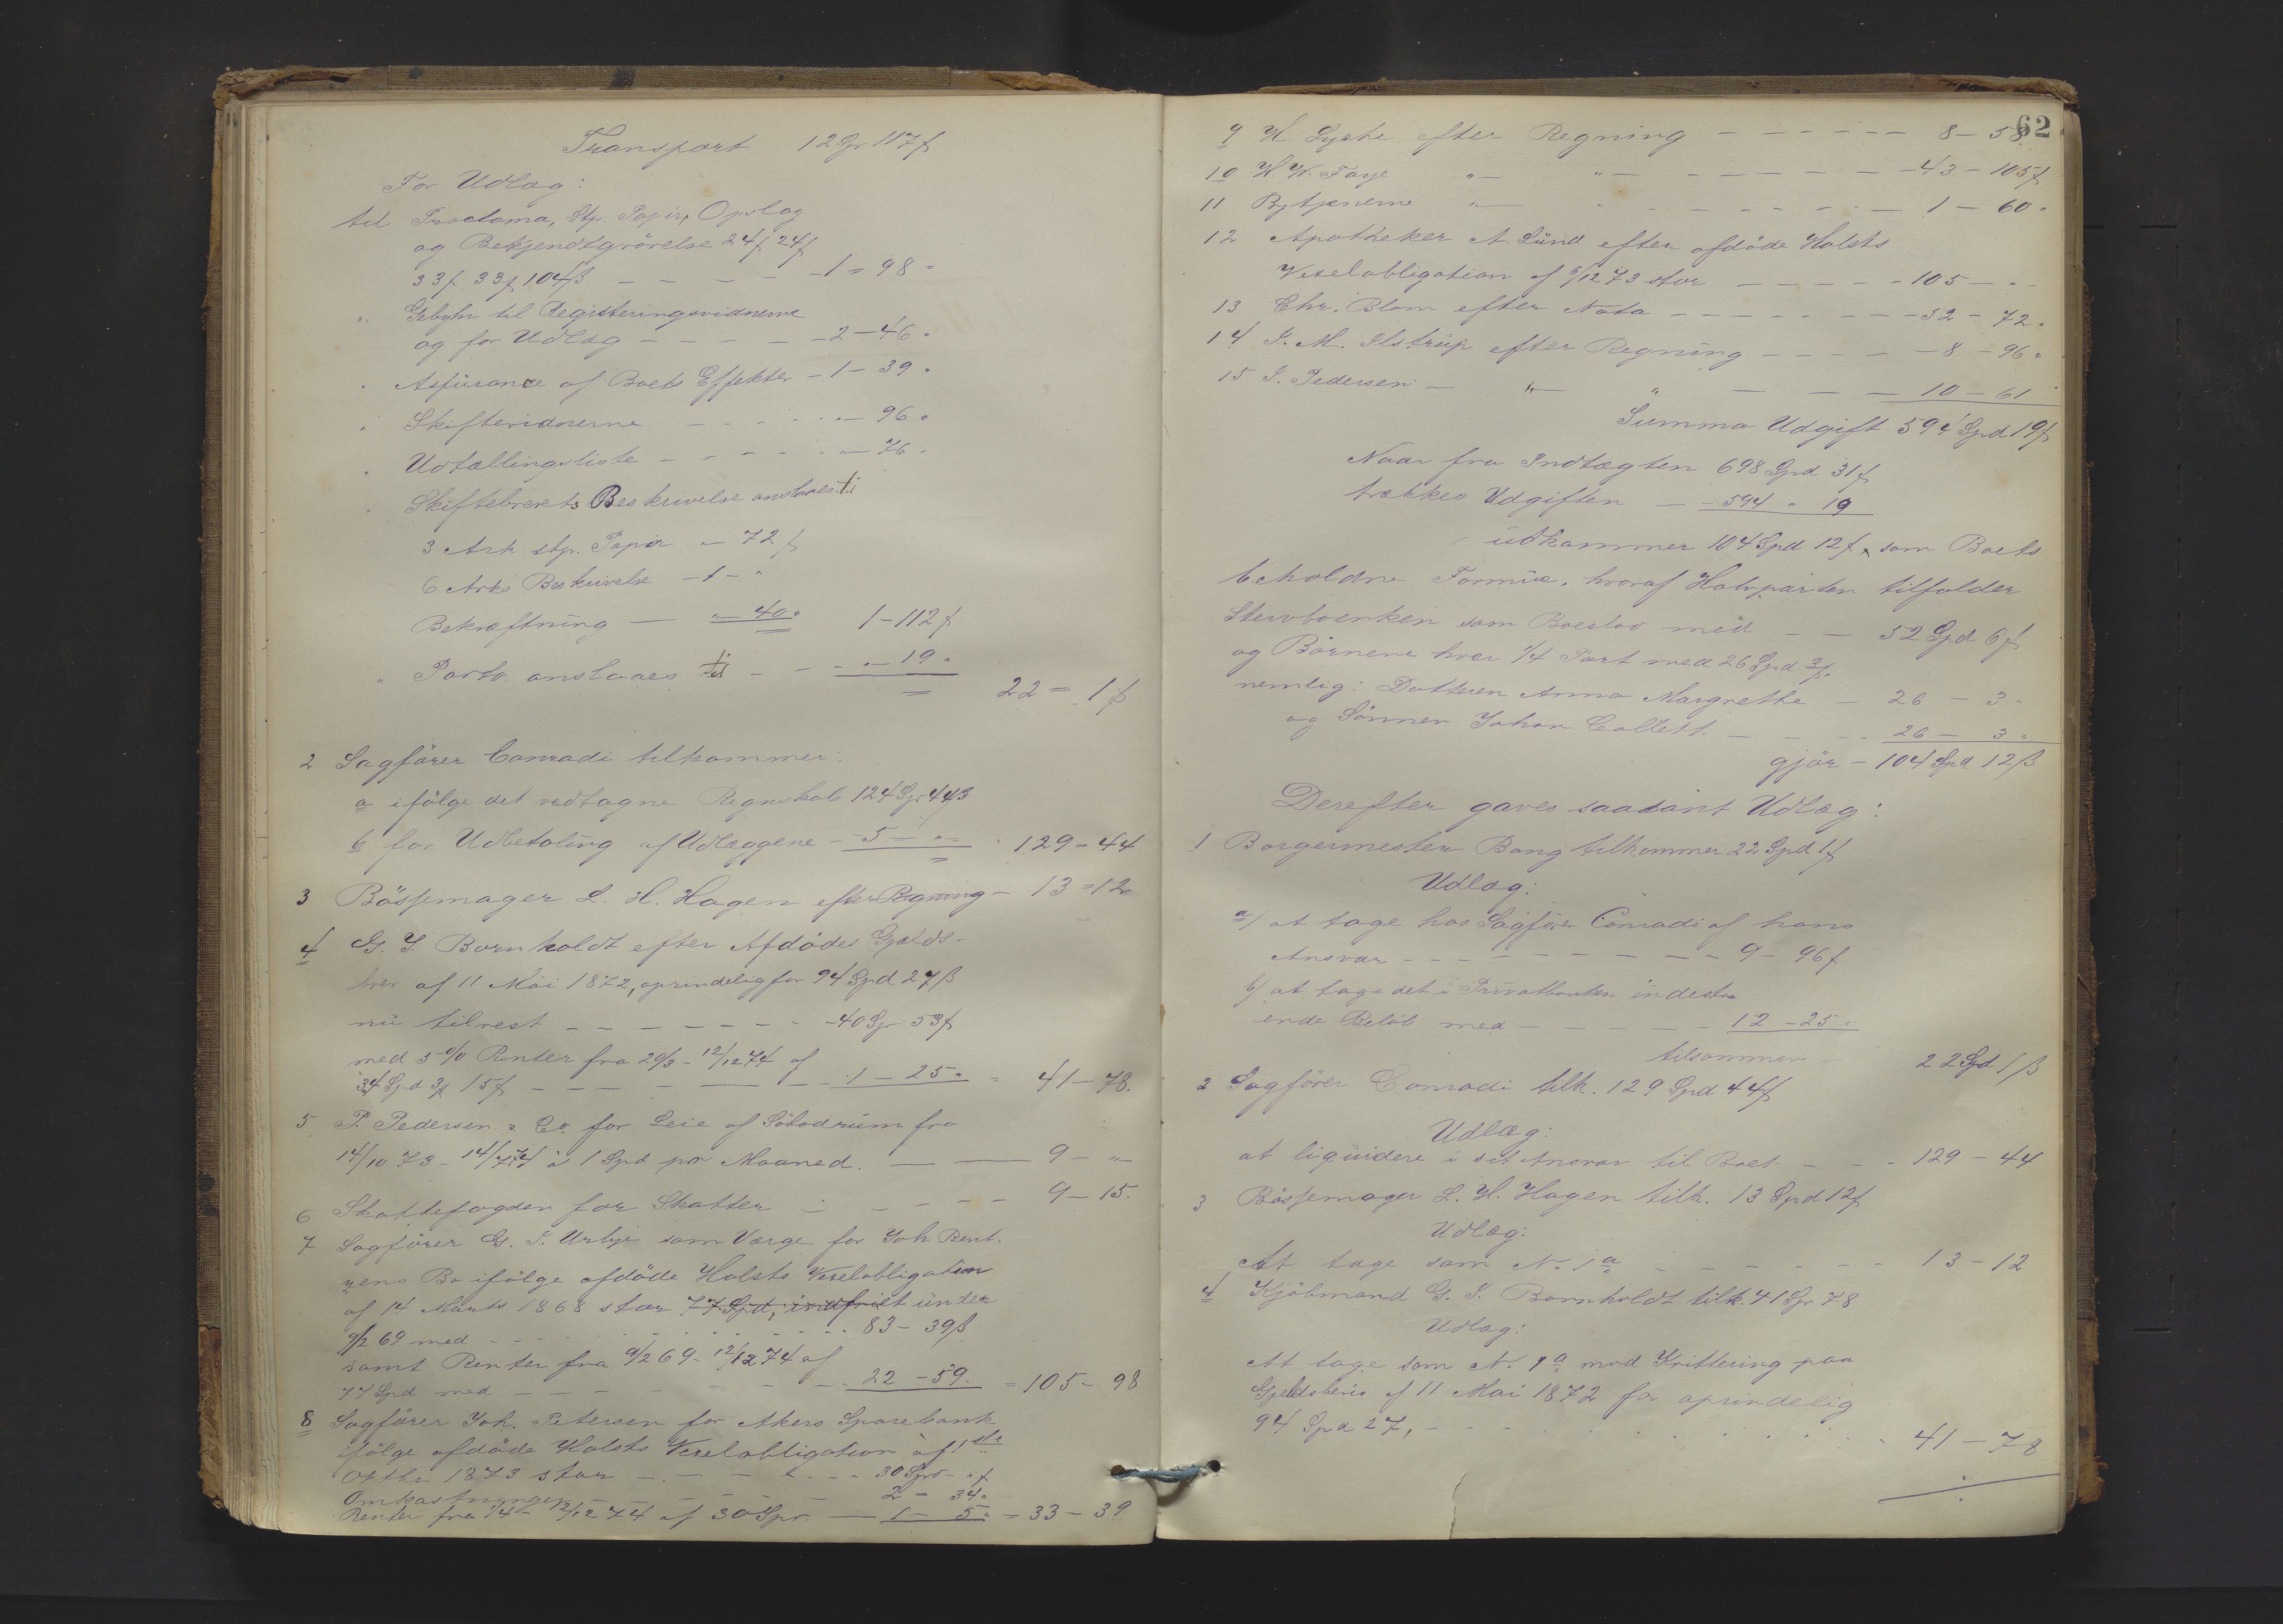 Transport 12 Spr 117 ß
For Udlæg:
til Proclama, Stp. Papir, Opslag
og Bekjendtgjörelse 24 ß 24 ß
33 ß 33 ß 104 ß - - - - - 1 = 98 "
" Gebyhr til Registeringsvidnerne
og for Udlæg - - - - - 2 - 46 "
" Assürance af Boets Effekter - 1 - 39 "
" Skiftevidnerne - - - - - " - 96 "
" Udtællingsliste - - - - - " - 76 "
" Skiftebrevets Beskrivelse anslaaes ti
3 Ark stp. Papir " - 72 ß
6 Arks Beskrivelse - 1 - "
Bekræftning - " - 40 " 1 - 112 ß
" Porto anslaaes til - - " - 19 "
22 = 1 ß
2 Sagförer Conradi tilkommer:
a ifölge det vedtagne Regnskab 124 Spr 44 ß
b for Udbetaling af Udlæggene - 5 - " - " 129 - 44
3 Bössemager L. H. Hagen efter Regning - 13 = 12
4 G. J. Bornholdt efter Afdödes Gjælds-
brev af 11 Mai 1872, oprindelig for 94 Spd 27 ß
nü tilrest - - - - - - - 40 Spr 53 ß
med 5 % Renter fra 20/3 - 12/12 74 af
34 Spd 3 ß 15 ß - - - - - - 1 - 25 " = 41 - 78.
5 P. Pedersen & Co. for Leie af Söbodrüm fra
14/10 73 - 14/7 74 à 1 Spd pr Maaned. - - 9 - " -
6 Skattefogden for Skatter - - - - - 9 - 15.
7 Sagförer G. J. Urbye som Værge for Joh Bent.
zens Bo ifölge afdöde Holsts Vexelobligation
af 14 Marts 1868 stor 77 Spd, indfriet ünder
9/2 69 med - - - - - - - - - 83 - 39 ß
samt Renter fra 9/2 69 - 12/12 74 af
77 Spd med - - - - - - - 22 - 59. = 105 - 98
8 Sagförer Joh. Petersen for Akers Sparebank
ifölge afdöde Holsts Vexelobligation af 1ste
Oktbr 1873 stor - - - - - - 30 Spd - " ß
Omkostninger - - - - - - 2 = 34 "
Renter fra 1/4 - 12/12 74 af 30 Spr. - 1 - 5 " = 33 - 39
62
9 H. Gjethe efter Regning - - - - - - 8 - 58.
10 H. W. Faye " - " - - - - - - 43 - 105 ß
11 Bytjenerne " - " - - - - - - 1 - 60 "
12 Apotheker A Lünd efter afdöde Holsts
Vexelobligation af 6/12 73 stor - - - - - 105 - " -
13 Chr. Blom efter Nota - - - - - - - 32 - 72 "
14 J. M. Ilstrüp efter Regning - - - - - 8 - 96 "
15 J. Pedersen - " - " - - - - 10 - 61
Summa Udgift 594 Spd 19 ß
Naar fra Indtægten 698 Spd 31 ß
trækkes Udgiften - - 594 " 19
üdkommer 104 Spd 12 ß, som Boets
beholdne Formüe, hvoraf Halvparten tilfalder
Stervboenken som Boeslod med - - 52 Spd 6 ß
og Börnene hver 1/4 Part med 26 Spd 3 ß,
nemlig: Datteren Anna Margrethe - 26 - 3 "
og Sönnen Johan Collett - - - - 26 - 3 "
gjör - 104 Spd 12 ß
Derefter gaves saadant Udlæg:
1 Borgermester Bang tilkommer 22 Spd 1 ß
Udlæg:
a/ at tage hos Sagförer Conradi af hans
Ansvar - - - - - - - - - 9 - 96 ß
b/ at tage det i Privatbanken indestaa
ende Belöb med - - - - - - 12 - 25 "
tilsammen - 22 Spd 1 ß
2 Sagförer Conradi tilk. 129 Spd 44 ß
Udlæg:
at liqüidere i sit Ansvar til Boet - - - 129 - 44
3 Bössemager L. H. Hagen tilk. 13 Spd 12 ß
Udlæg:
At tage som No 1 a - - - - - - 13 - 12
4 Kjöbmand G. J. Bornholdt tilk. 41 Spr 78
Udlæg:
At tage som No 1 a mod Kvittering paa
Gjeldsbevis af 11 Mai 1872 for oprindelig
94 Spd 27, - - - - - - - - - - 41 - 78